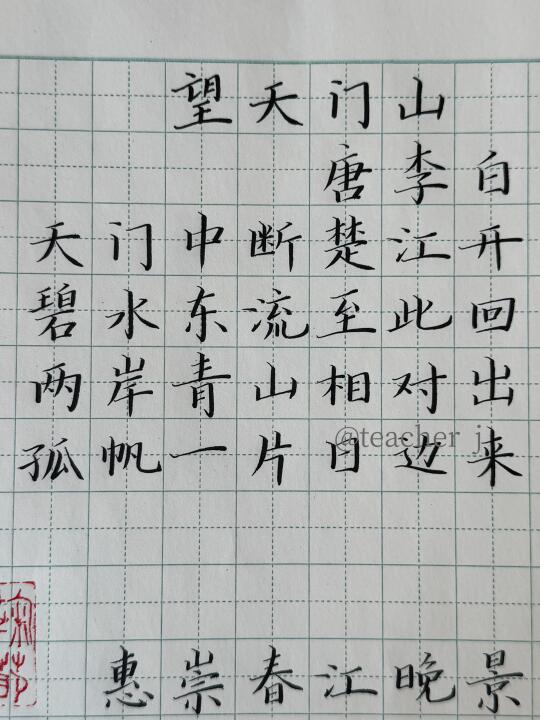 望天门山
唐李白
天门中断楚江开
碧水东流至此回
两岸青山相对出
孤帆一片日边来
@teacher j
惠崇春江晚景